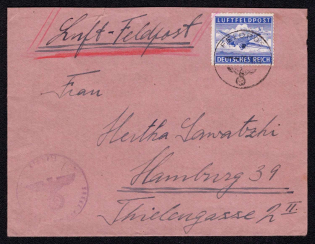 Luft-Feldpost
LUFTFELDPOST
DEUTSCHES REICH
Frau
Hertha Sawatzki
Hamburg 39
Thielengasse 2 II.